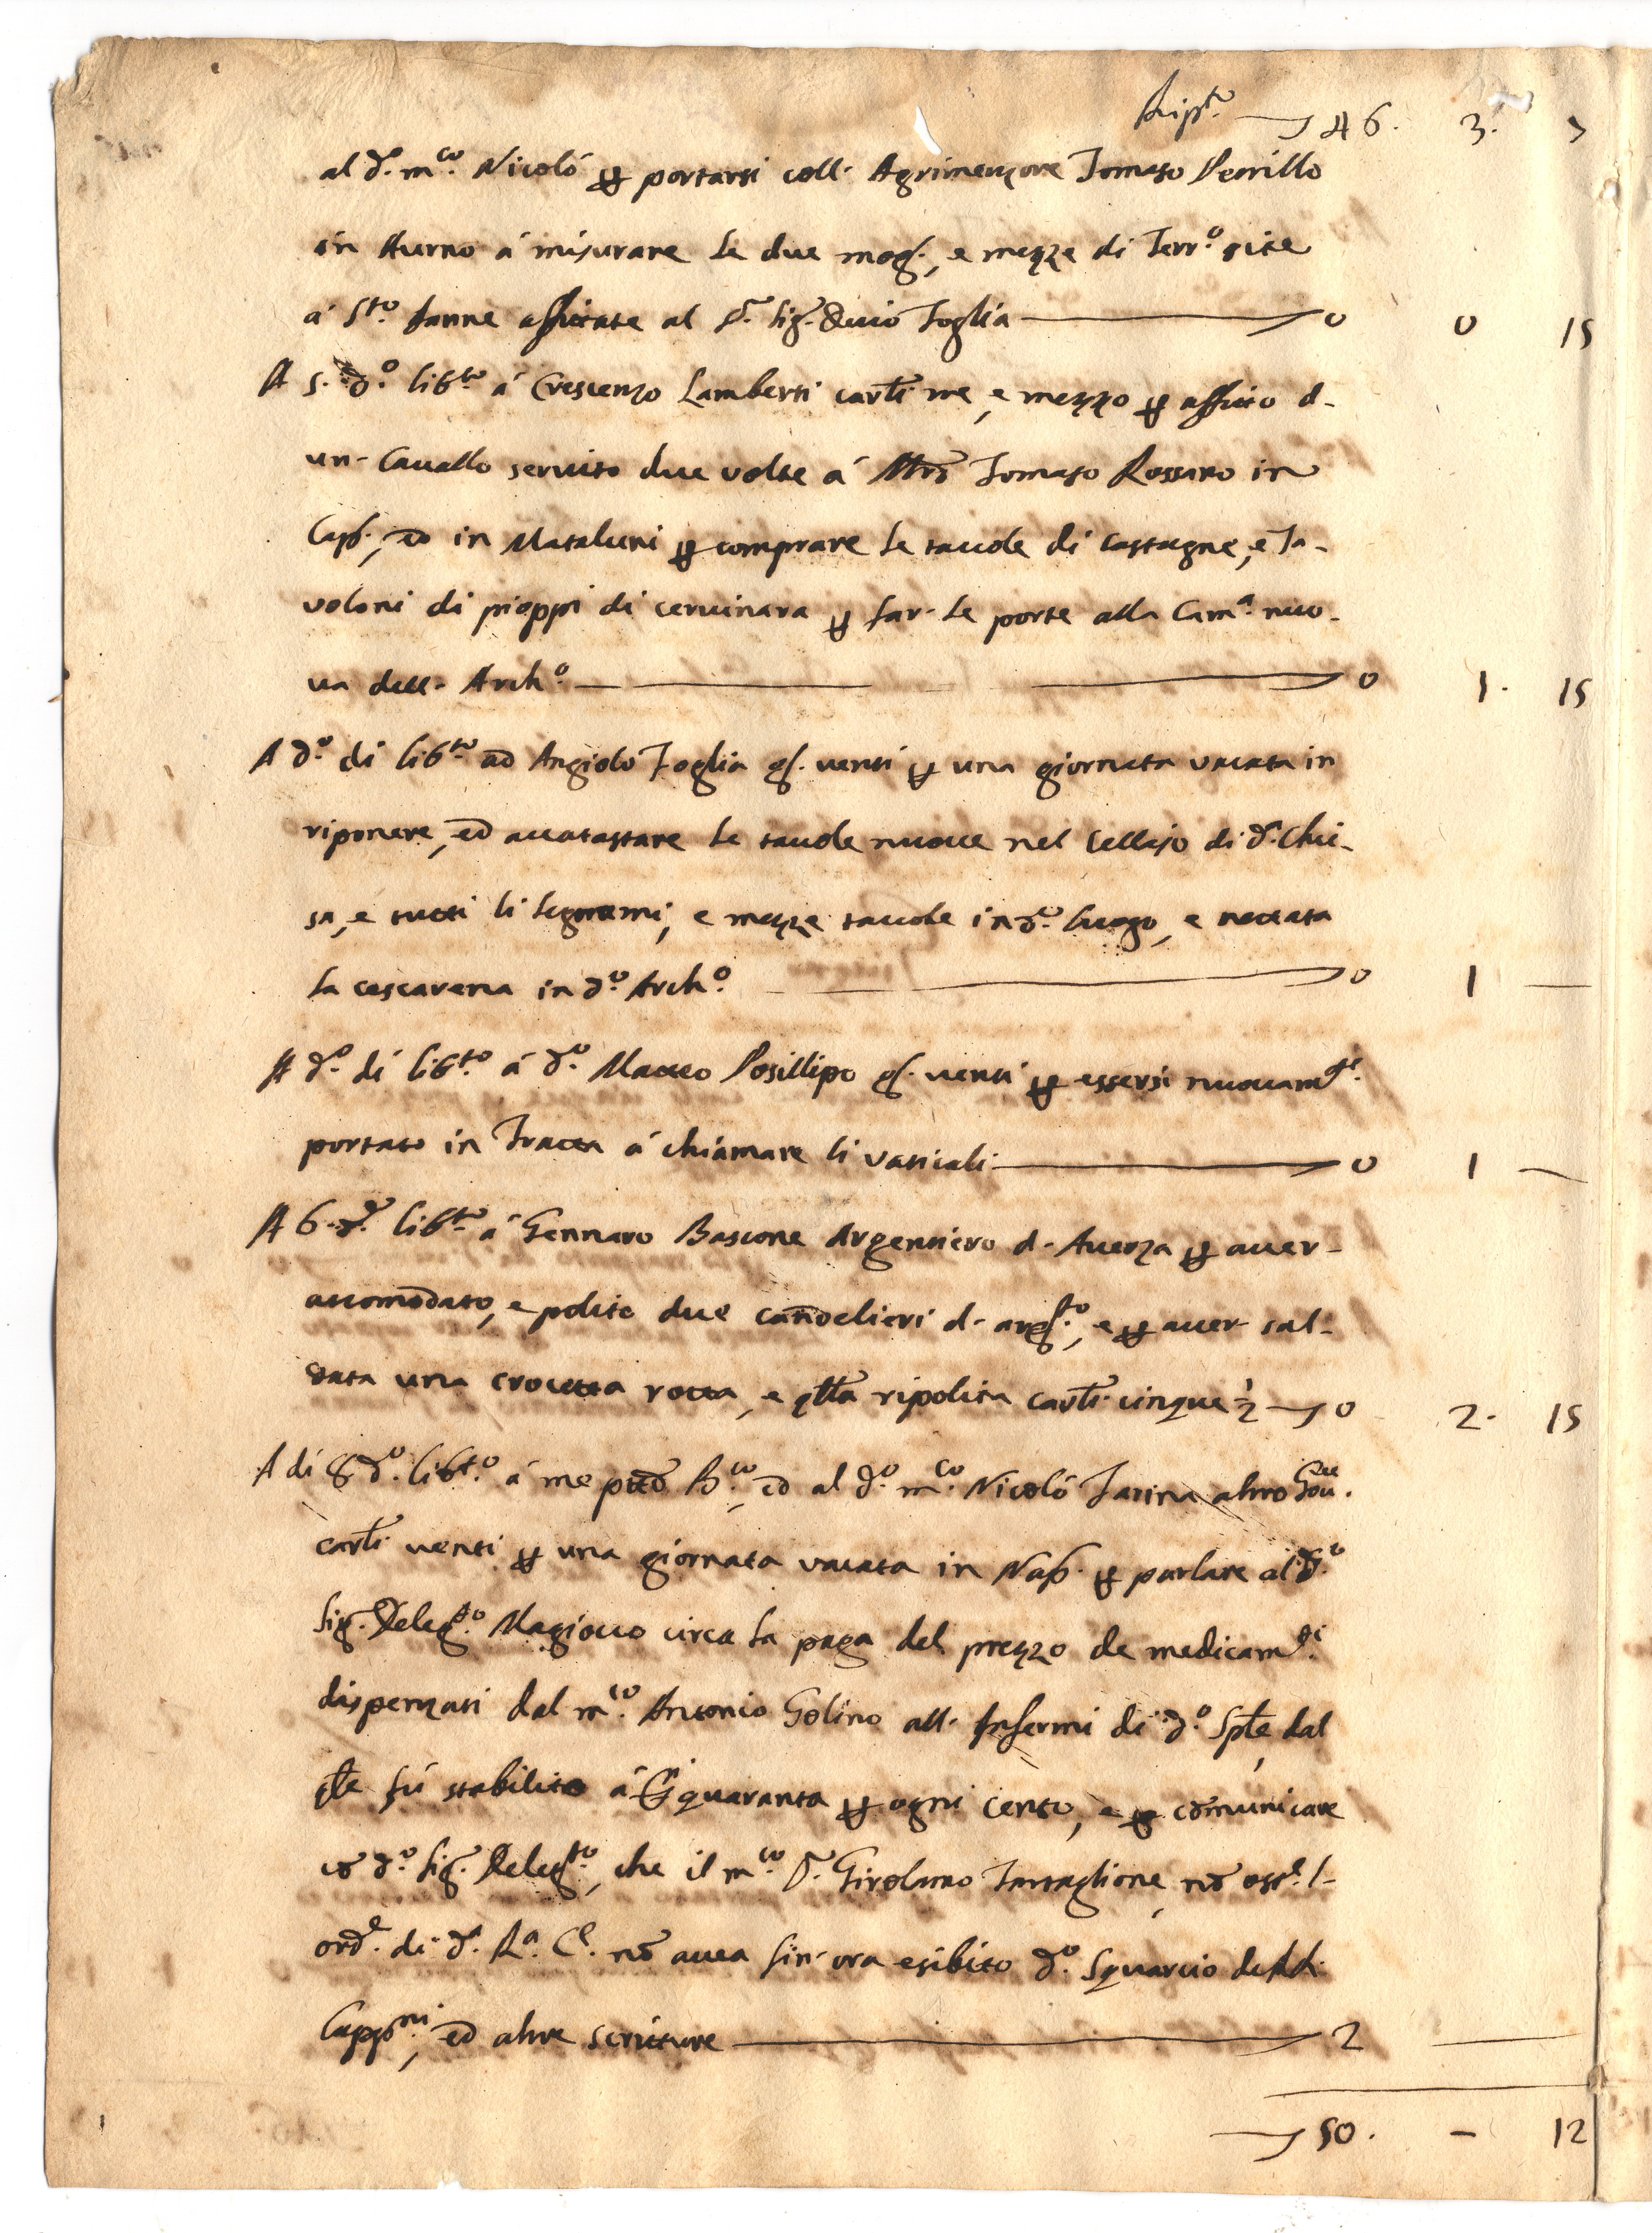 Rip.to 46. 3. 7
al d.o m.co Nicolò p portarsi coll' Agrimenzore Tomaso Perrillo
in Aurno à misurare le due mog., e mezze di Terr.o site
à S.to Ianne affittate al D.r Sig. Toglia 0 0 15
A 5. d.o lib.to à Crescenzo Lamberti carli tre, e mezzo p affitto d'
un' Cavallo servito due volte à Mro Tomaso Rossano in
Cap., ed in Mataluni p comprare le tavole di castagne, e Ta-
voloni di pioppi di cervinara p far' le porte alla Cam.a nuo-
va dell' Arch.o 0 1. 15
A d.o di lib.to ad Angiolo Foglia g. venti p una giornata vacata in
riponere, ed accatastare le tavole nuove nel Cellajo di d.a Chie-
sa, e tutti li legnami, e mezze tavole in d.o luogo, e nettata
la cascarena in d.o Arch.o 0 1 —
A d.o di lib.to à d.o Matteo Posillipo g. venti p essersi nuovam.te
portato in Fratta à chiamare li vaticali 0 1 —
A 6. d.o lib.to à Gennaro Bascone Argentiero d' Averza p aver-
accomodato, e polito due candelieri d' arg.to, e p aver sal-
data una crocetta rotta, e qlla ripolita carli cinque ½ 0 2. 15
A di 8 d.o lib.to à me ptto B.co, ed al d.o m.co Nicolò Farina altro Gov.re
carli venti p una giornata vacata in Nap. p parlare al d.o
Sig. Deleg.to Magiocco circa la paga del prezzo de medicam.ti
dispenzati dal m.co Antonio Golino all' Infermi di d.o Sple, dal
qle fù stabilito à quaranta p ogni cento, e p comunicare
co d.o Sig. Deleg.to, che il m.co D.r Girolamo Tartaglione, no ost.e l'
ord.e di d.a R.a C.a no avea fin' ora esibito d.o Squarcio delli
Capp.ni, ed altre scritture 2 —
50. — 12